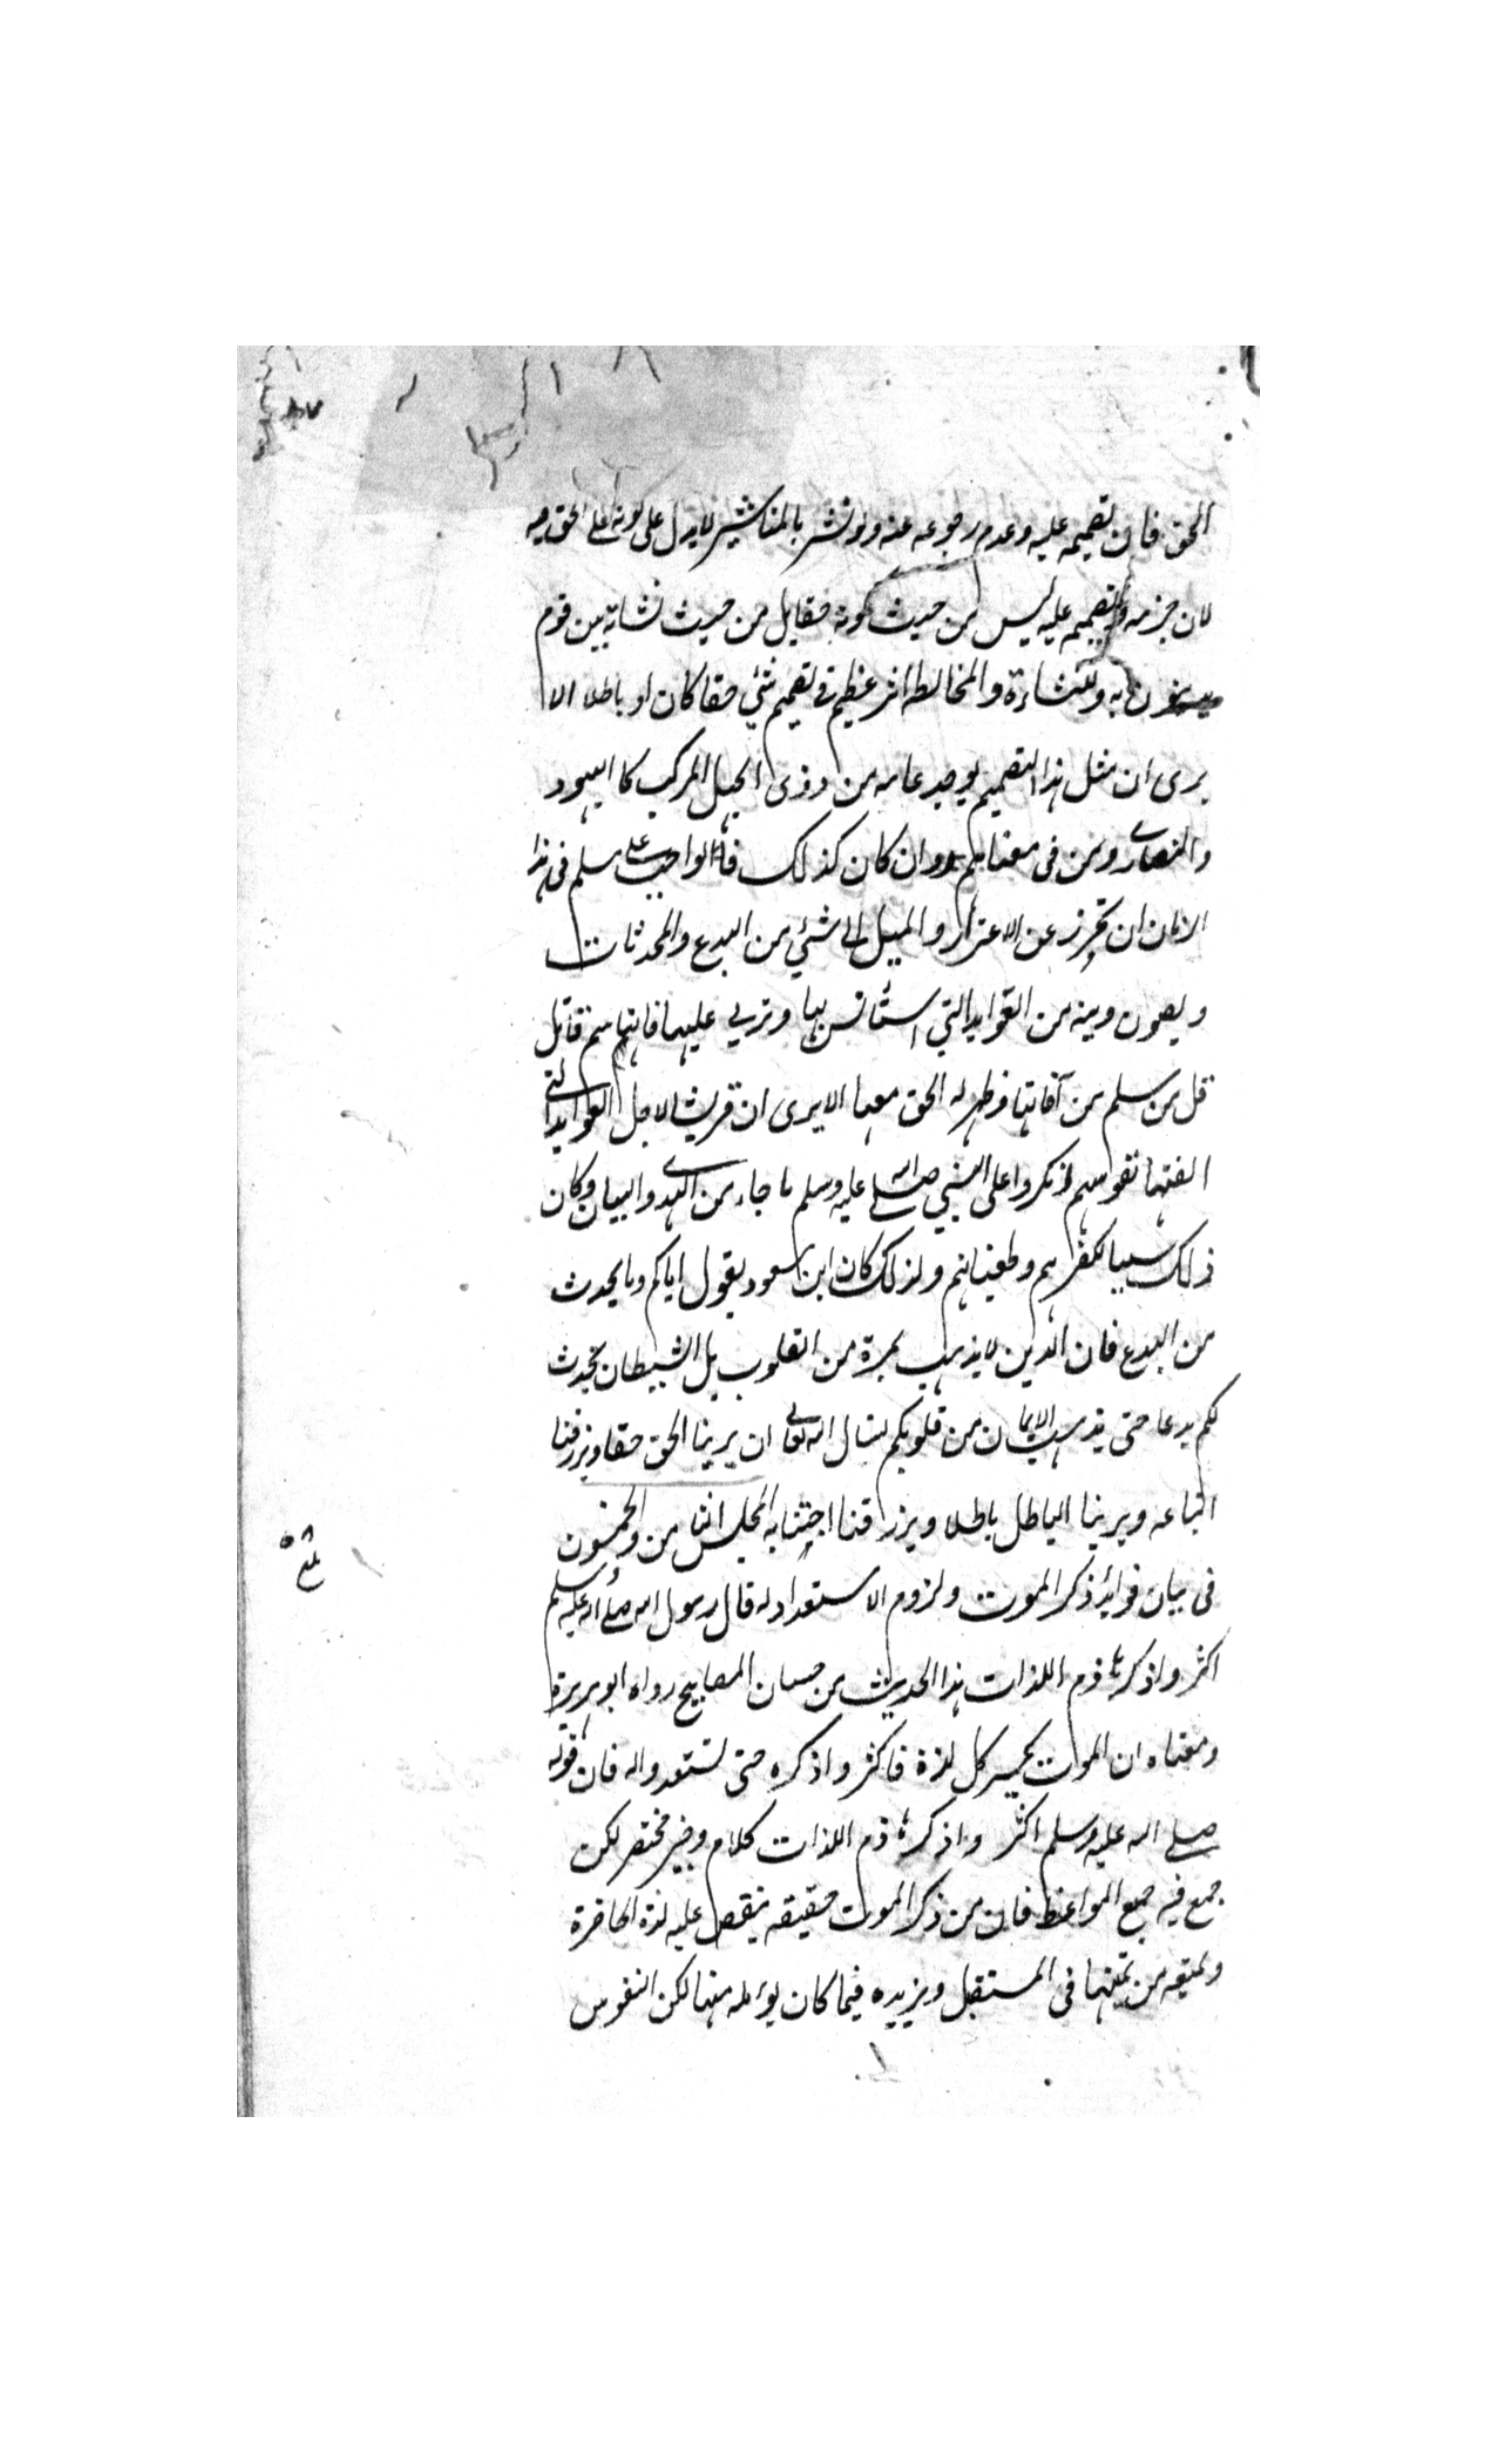 الحق فان تصميمه عليه وعدم رجوعه عنه ولو نشر بالمناشير لا يدل على كونه على الحق فيه
لان جزمه وتصميمه عليه ليس من حيث كونه حقا بل من حيث نشاته بين قوم
يدينون به وللنشاءة والمخالطه اثر عظيم في تصميم شئي حقا كان او باطلا الا
يرى ان مثل هذا التصميم يوجد عامه من ذوى الجهل المركب كا اليهود
والنصارى ومن فى معناهم وان كان كذلك فالواجب على مسلم فى هذا
الزمان ان يحترز عن الاغترار والميل الى شئي من البدع والمحدثات
ويصون دينه من العوايد التي استانس بها وتربي عليها فانها سم قاتل
قل من سلم من آفاتها وظهر له الحق معها الا يرى ان قريشا لاجل العوايد التي
الفتها نفوسهم انكروا على النبي صلى الله عليه وسلم ما جاء من الهدى والبيان وكان
ذلك سببا لكفرهم وطغيانهم ولذلك كان ابن مسعود يقول اياكم وما يحدث
من البدع فان الدين لا يذهب بمرة من القلوب بل الشيطان يحدث
لكم بدعا حتى يذهب الايمان من قلوبكم نسال الله تعالى ان يرينا الحق حقا ويرزقنا
اتباعه ويرينا الباطل باطلا ويرزقنا اجتنابه المجلس الثامن والخمسون
فى بيان فوائد ذكر الموت ولزوم الاستعداد له قال رسول الله صلى الله عليه وسلم
اكثروا ذكر هاذم اللذات هذا الحديث من حسان المصابيح رواه ابو هريرة
ومعناه ان الموت يكسر كل لذة فاكثروا ذكره حتى تستعدوا له فان قوله
صلى الله عليه وسلم اكثروا ذكر هاذم اللذات كلام وخير مختصر لكن
جمع فيه جميع المواعظ فان من ذكر الموت حقيقه ينقص عليه لذة الحاضرة
ويمنعه من تمنيها فى المستقبل ويزيده فيما كان يؤمله منها لكن النفوس